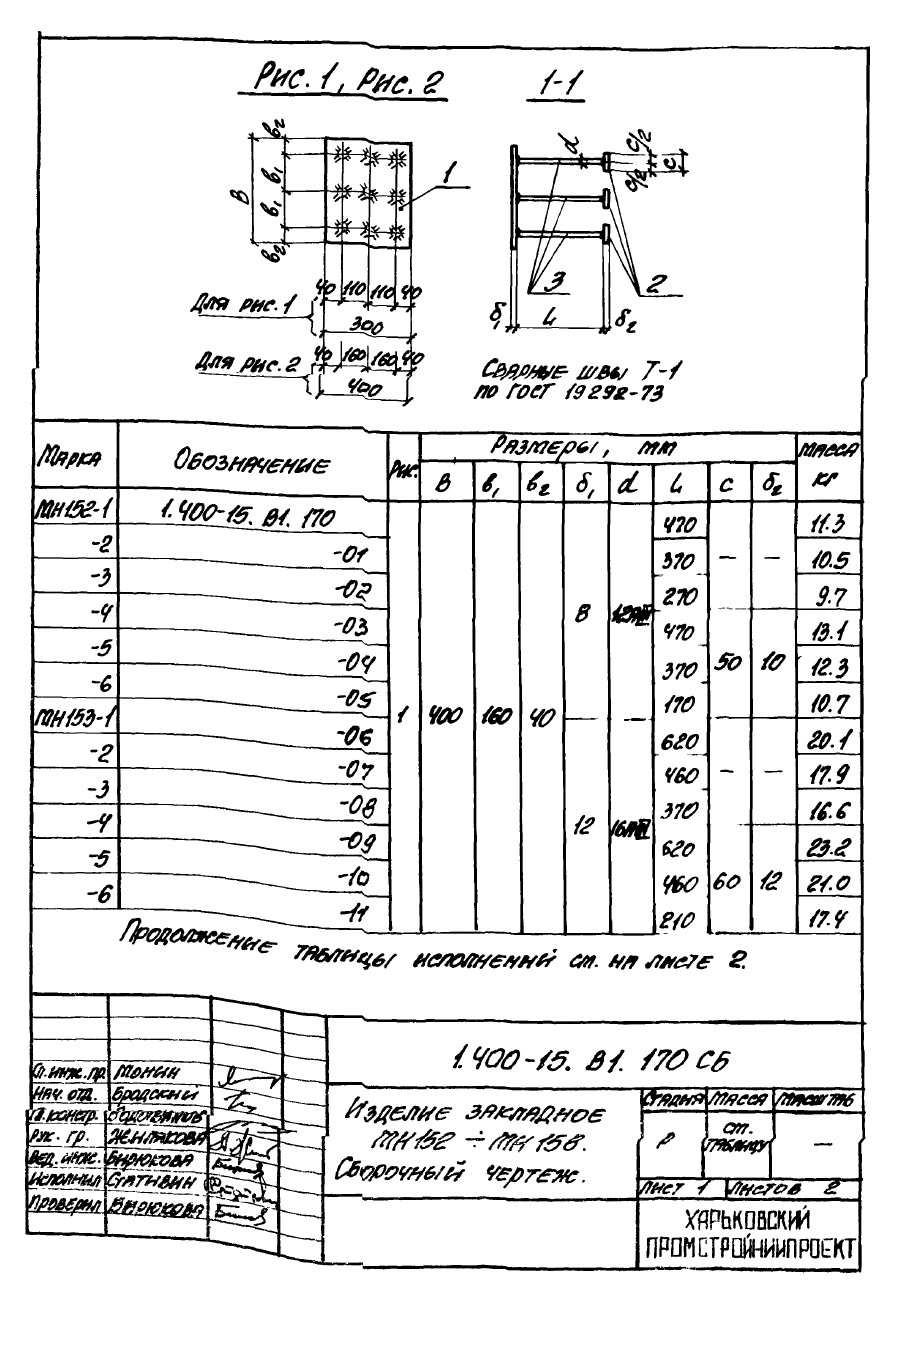 Рис. 1, Рис. 2
1-1
в2
в1
в1
в2
В
1
d
с/2
с/2
с
3
2
40 110 110 40
Для рис. 1
300
40 160 160 40
Для рис. 2
400
δ1 L δ2
Сварные швы Т-1
по ГОСТ 19292-73
Марка Обозначение Рис. Размеры, мм Масса кг
В в1 в2 δ1 d L с δ2
МН152-1 1.400-15. В1. 170 470 11.3
-2 -01 370 — — 10.5
-3 -02 270 9.7
-4 -03 8 12АIII 470 13.1
-5 -04 370 50 10 12.3
-6 -05 170 10.7
МН153-1 -06 1 400 160 40 620 20.1
-2 -07 460 — — 17.9
-3 -08 370 16.6
-4 -09 12 16АIII 620 23.2
-5 -10 460 60 12 21.0
-6 -11 210 17.4
Продолжение таблицы исполнений см. на листе 2.
1.400-15. В1. 170 СБ
Гл. инж. пр. Монин
Нач. отд. Бродский
Гл. констр.
Рук. гр. Жилякова
Вед. инж. Бирюкова
Исполнил Стативин
Проверил Бирюкова
Изделие закладное
МН152 ÷ МН158.
Сборочный чертеж.
Стадия Масса Масштаб
Р см. таблицу —
Лист 1 Листов 2
ХАРЬКОВСКИЙ
ПРОМСТРОЙНИИПРОЕКТ